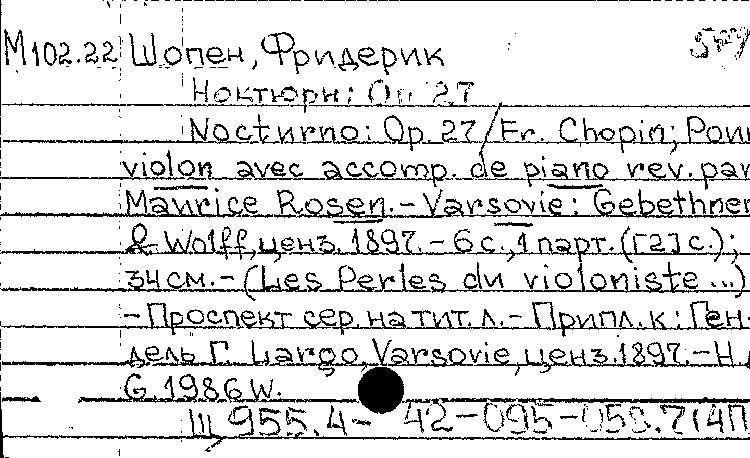 М102.22 Шопен, Фридерик
Ноктюрн: Op. 27
Nocturno: Op. 27 / Fr. Chopin; Pour
violon avec accomp. de piano rev. par
Maurice Rosen. – Varsovie: Gebethner
& Wolff, ценз. 1897. – 6 с., 1 парт. ([2] с.);
34 см. – (Les Perles du violoniste ...)
– Проспект сер. на тит. л. – Припл. к: Ген-
дель Г. Largo, Varsovie, ценз. 1897. – Н.
G. 1986 W.
III 955.4 – 42–095–058.7(4П